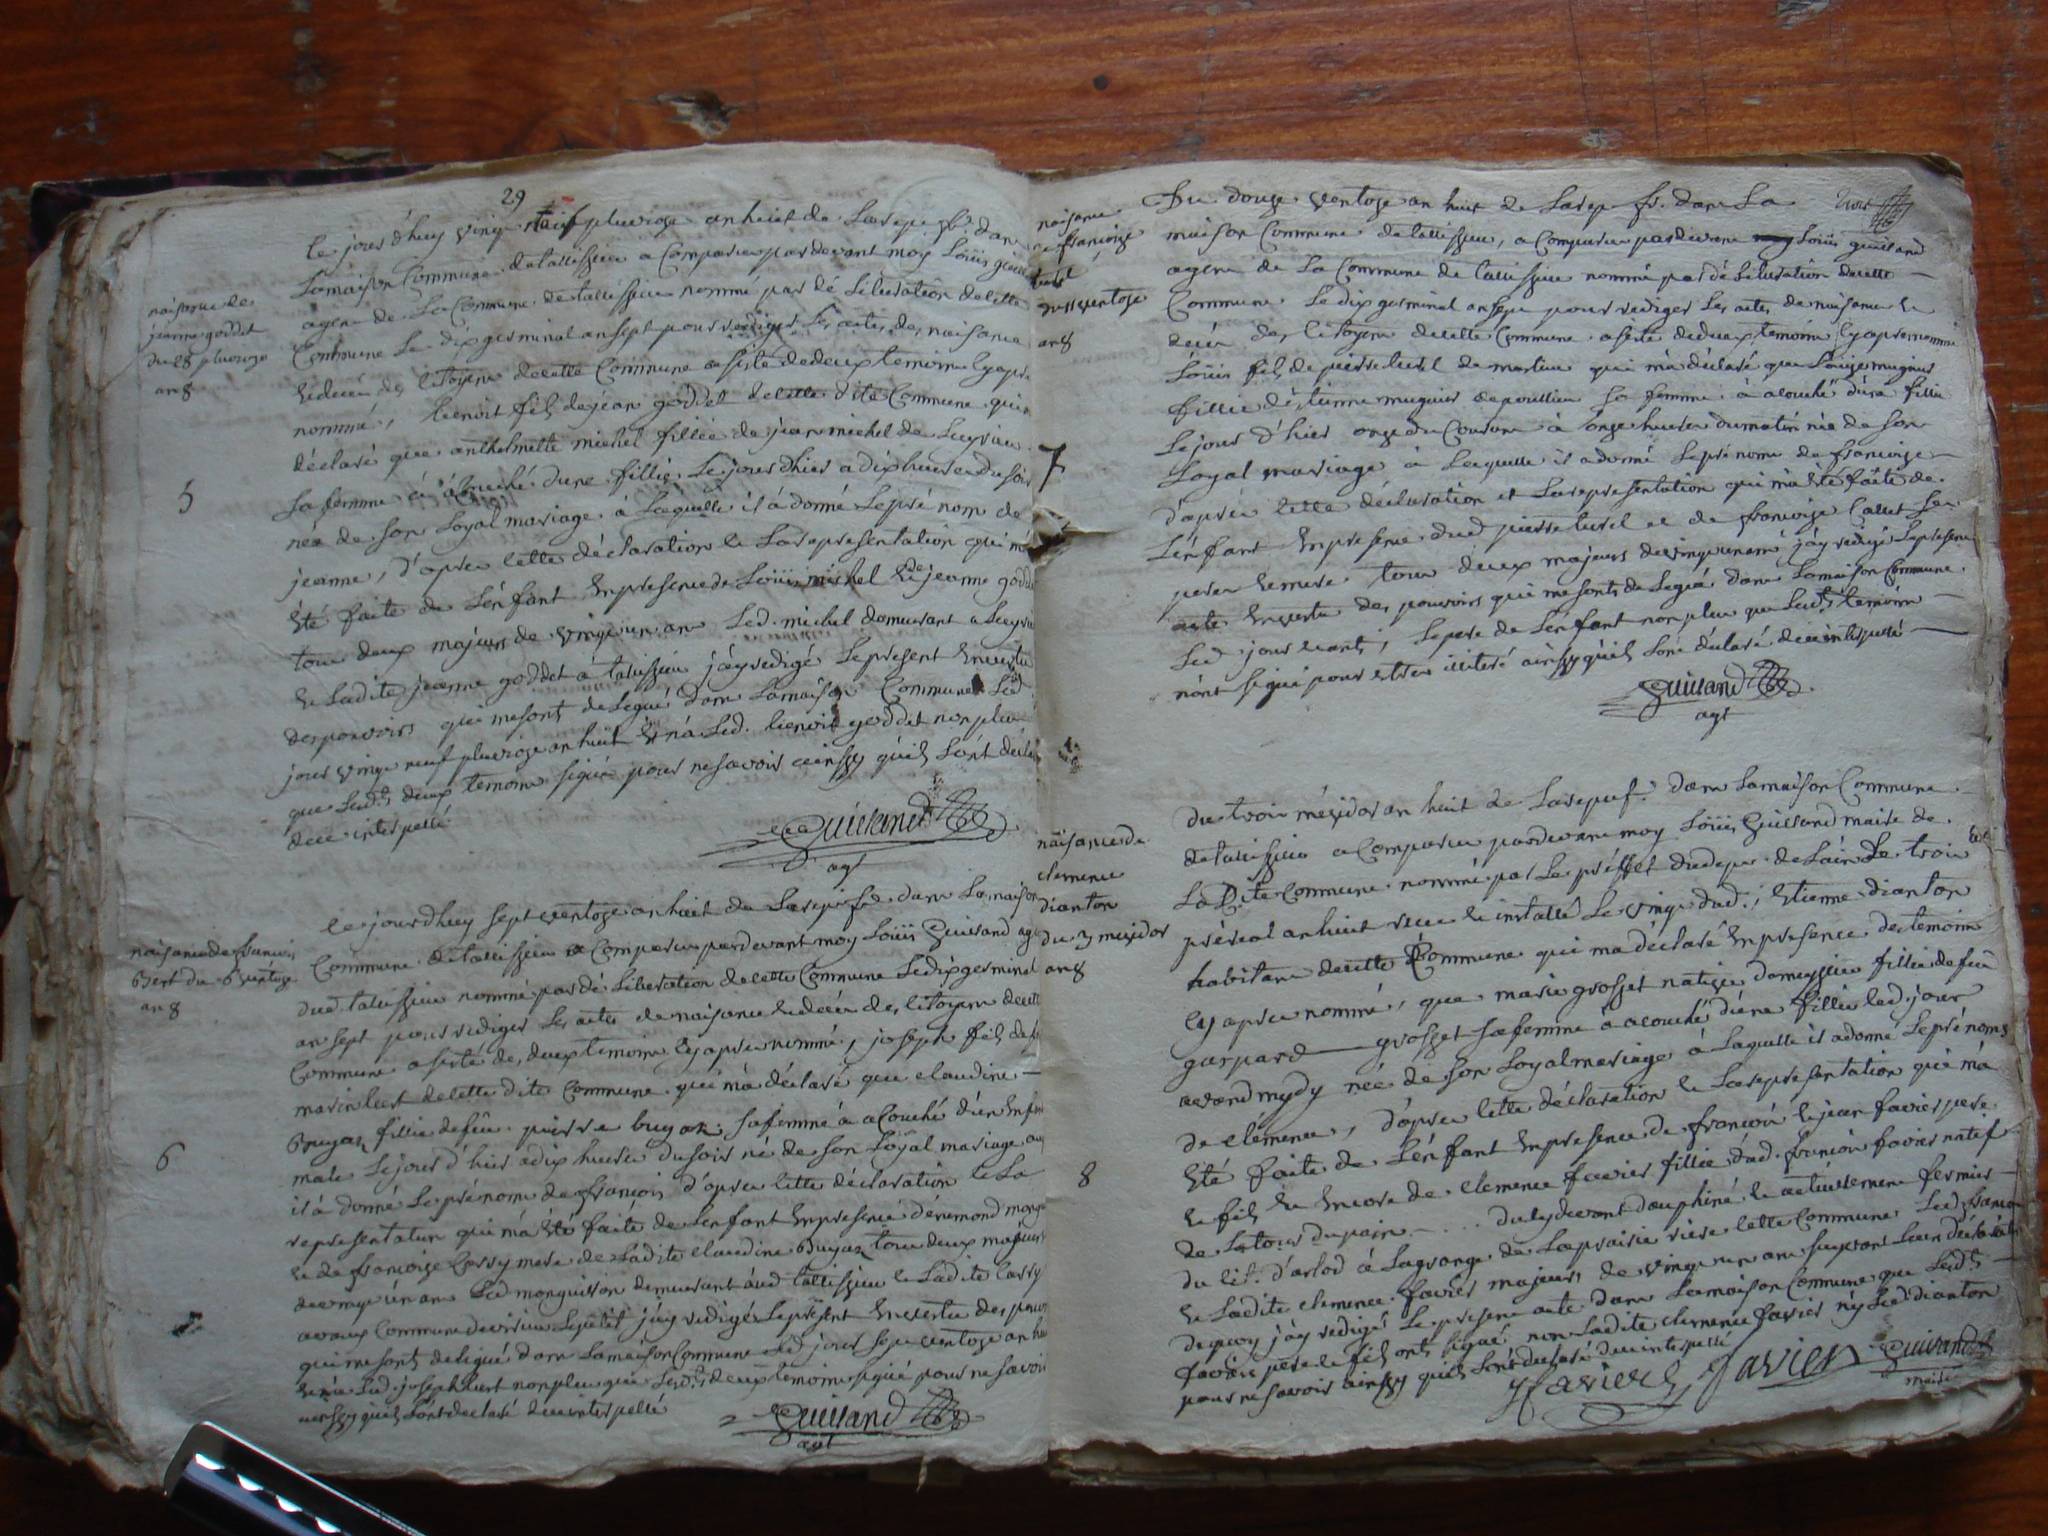 29
le jourdhuy vingt neuf pluviose an huit de la rep. fr. dans
la maison Commune de talissieu a Comparu pardevant moy Loüis
agent de La Commune de talissieu nommé par dé Liberation de cette
Commune Le dix germinal an sept pour rediger Les actes des naisance
et decés des Citoyens de cette Commune asisté de deux temoins Cyaprés
nommé, benoit fils de jean goddet de cette dite Commune qui m
déclaré que anthelmette michel fillie de jean michel de
Sa femme à àcouché dune fillie Le jour dhier a dix heures du soir
née de son Loyal mariage à Laquelle il à donné Le pré nom de
jeanne, d'aprés cette déclaration et La representation qui m
été faite de L'énfant En presence de Loüis michel et de jeanne
tous deux majeurs de vingt un an Led. michel demeurant a
et Ladite jeanne goddet à talissieu j'ày redigé Le present En vertu
des pouvoirs qui me sont delegué dans La maison Commune Led.
jour vingt neuf pluviose an huit et n'a Led. benoit goddet non plus
que Lesd.ts deux temoins signé pour ne savoir ainssy quils L'ont décla
de ce interpellé
Guilland
agt
naisance de
jeanne goddet
du 28 pluviose
an 8
5
le jourdhuy sept ventose an huit de La rep. fr. dans La maison
Commune de talissieu a Comparu pardevant moy Loüis Guilland agt
dud. talissieu nommé par dé Liberation de cette Commune Le dix germinal
an sept pour rediger Les actes de naisance et decés des Citoyens de cette
Commune asisté de deux temoins Cy aprés nommé, joseph fils de
marin bert de cette dite Commune qui m'a déclaré que claudine
Buyat fillie de feu pierre buyat sa femme à acouché d'un Enfant
male Le jour d'hier a dix heures du soir né de son Loyal mariage au
il à donné Le prénom de françois d'aprés cette déclaration et La
representation qui m'a été faite de L'énfant En presence
et de françoise Carry mere de Ladite claudine Buyat tous deux majeurs
de vingt un an Led. demeurant aud. talissieu et Ladite Carry
Commune j'ày redigé Le present En vertu des pouvoi
qui me sont delegué dans La maison Commune Led. jour sept ventose an hui
et n'a Led. joseph bert non plus que Lesd.ts deux temoins signé pour ne savoir
ainssy quils L'ont declaré de ce interpellé
Guilland
agt
naisance de francois
Bert du 6 ventose
an 8
6
Du douze ventose an huit de La rep. fr. dans La
maison Commune de talissieu, a Comparu pardevant Loüis guilland
agent de La Commune de talissieu nommé par dé Liberation de cette
Commune Le dix germinal an sept pour rediger Les actes de naisance et
decés des Citoyens de cette Commune asisté de deux temoins Cy aprés nommé
Loüis fils de pierre de qui m'a déclaré que Loüise mugnier
fillie d'étienne mugnier de sa femme à acouché d'une fillie
Le jour d'hier onze du Courant à onze heures du matin née de son
Loyal mariage à Laquelle il a donné Le pré nom de françoise
d'aprés cette déclaration et La representation qui m'a été faite de
L'énfant En presence dud. pierre et de françoise Callet Ses
pere et mere tous deux majeurs de vingt un an j'ay redigé Le present
acte En vertu des pouvoirs qui me sont de Legué dans La maison Commune
Led. jour et an, Le pere de L'enfant non plus que Lesd.ts temoins
n'ont signé pour etre illiteré ainssy quils L'ont déclaré de ce interpellé
Guilland
agt
naisance
de françoise
du 11 ventose
an 8
7
du trois méssidor an huit de La rep. f. dans La maison Commune
de talissieu a Comparu pardevant moy Loüis Guilland maire de
La Dite Commune nommé par Le préffet du dep. de L'ain Le trois
préreal an huit et installé Le vingt dud., étienne dianton
habitant de cette Commune qui m'a déclaré En presence des temoins
Cy aprés nommé, que marie grosset native fillie de feu
gaspard grosset sa femme à acouché d'une fillie led. jour
avand mydy née de son Loyal mariage à Laquelle il a donné Le prénoms
de clémence, d'aprés cette déclaration et La representation qui m'a
été faite de L'énfant En presence de françois et jean favier pere
et fils et Encore de clemence favier fillie dud. françois favier natif
de Latour du pain du dauphiné et actuelement fermier
du Cit. d'arlod à La grange de La prairie riére cette Commune Led. françois
et Ladite clemence favier majeurs de vingt un an suivant Leur déclaration
de quoy j'ày redigé Le present acte dans La maison Commune que Lesd.ts
favier pere et fils ont signé non Ladite clemence favier n'y Led. dianton
pour ne savoir ainssy quils L'ont declaré de ce interpellé
favier favier Guilland
maire
naisance de
clemence
dianton
du 3 messidor
an 8
8